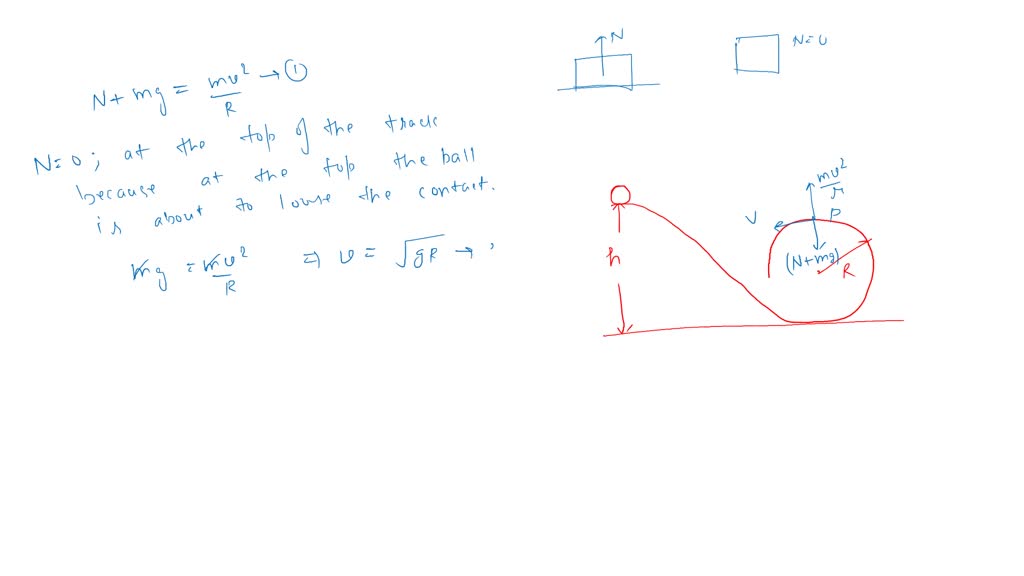 N + mg = mv²/R → ①
N=0; at the top of the track
because at the top the ball
is about to loose the contact.
mg = mv²/R ⇒ v = √gR →
N
N=0
mv²/r
P
V
(N+mg)
R
h